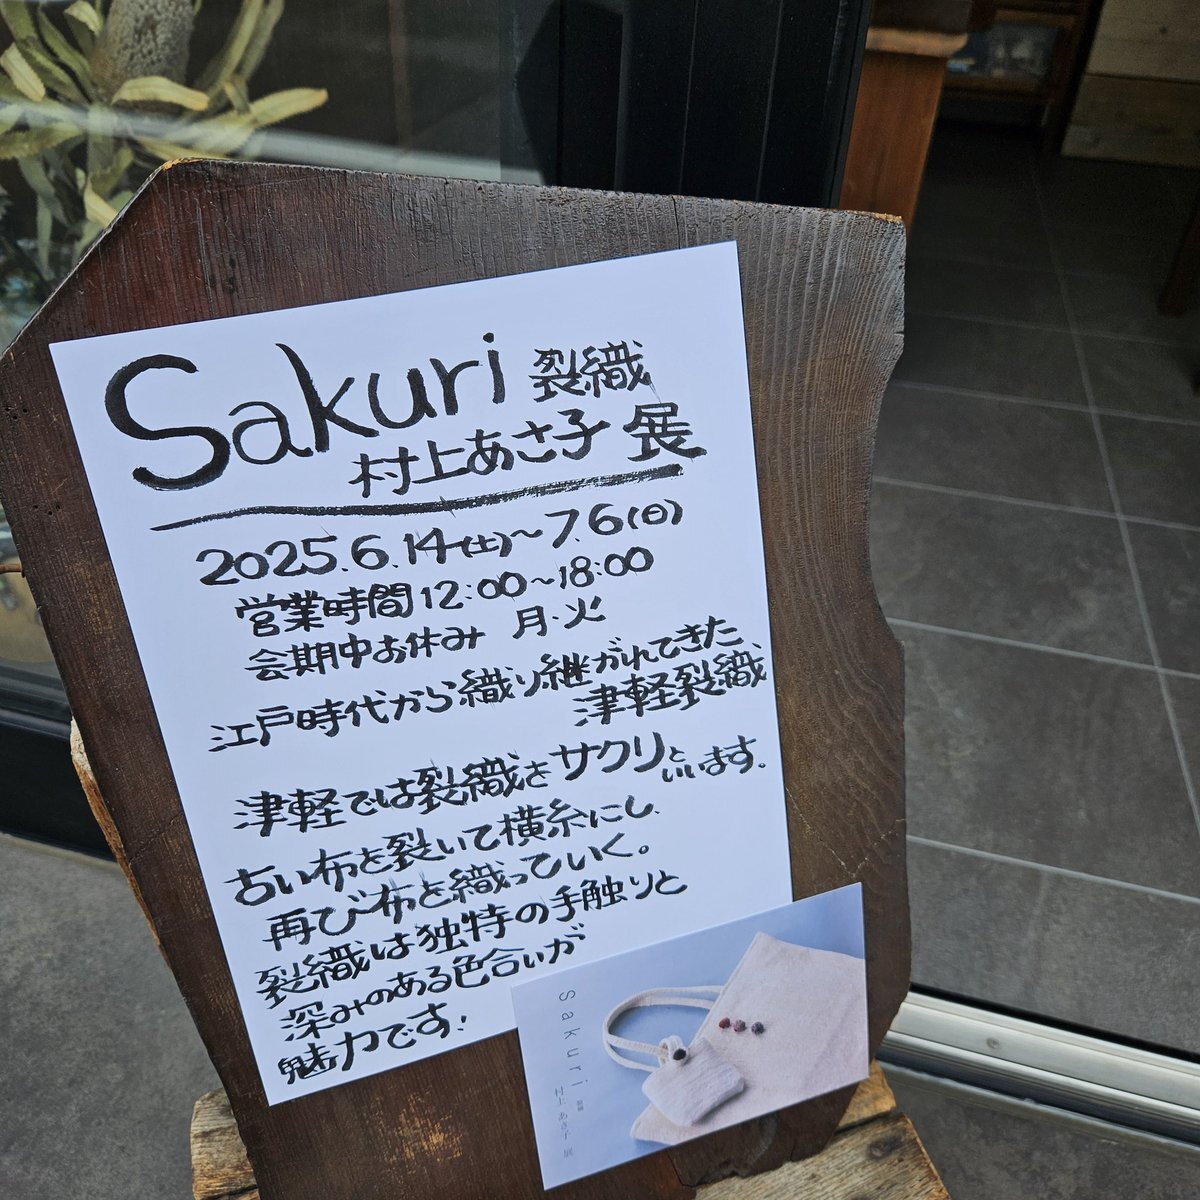 Sakuri 裂織
村上あさ子 展
2025.6.14(土)~7.6(日)
営業時間12:00~18:00
会期中お休み 月・火
江戸時代から織り継がれてきた
津軽裂織
津軽では裂織をサクリといいます.
古い布を裂いて横糸にし、
再び布を織っていく。
裂織は独特の手触りと
深みのある色合いが
魅力です!
Sakuri 裂織
村上あさ子 展